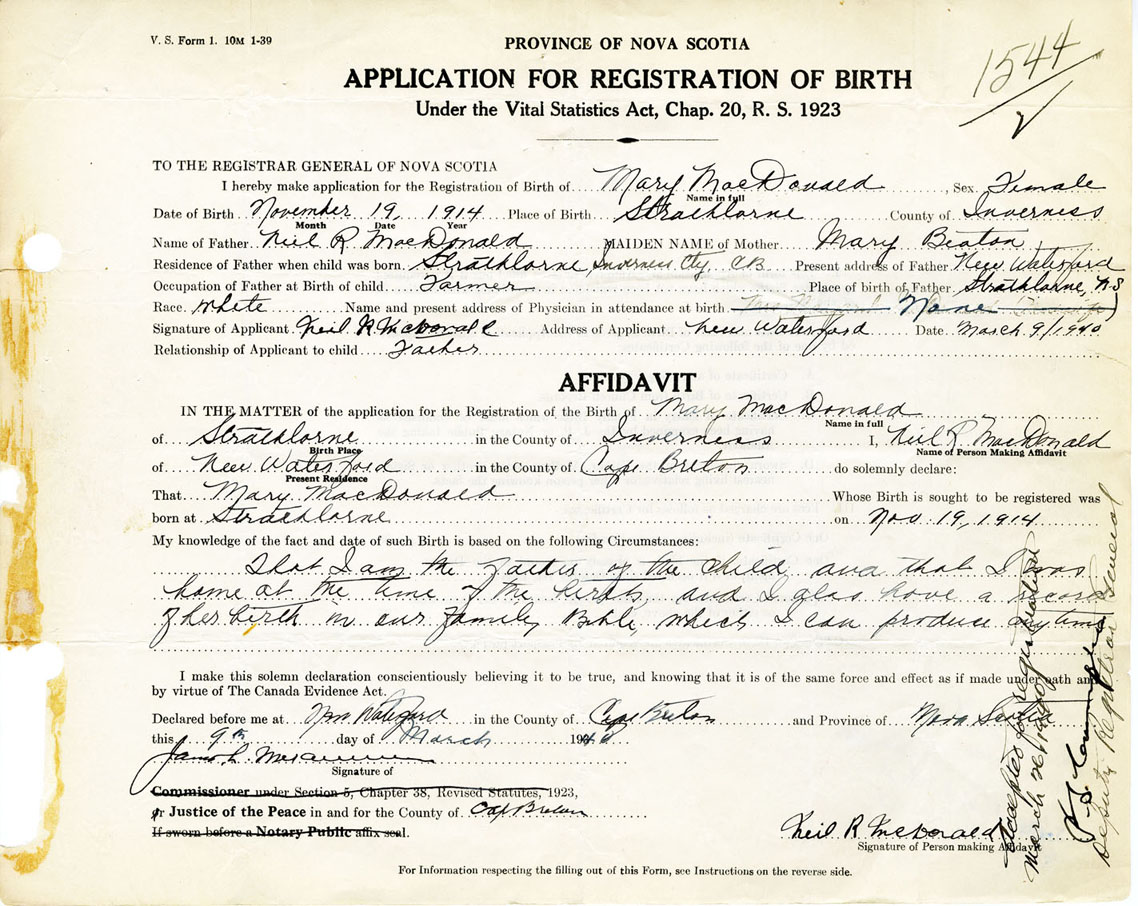 V. S. Form 1. 10M 1-39
1544
PROVINCE OF NOVA SCOTIA
APPLICATION FOR REGISTRATION OF BIRTH
Under the Vital Statistics Act, Chap. 20, R. S. 1923
TO THE REGISTRAR GENERAL OF NOVA SCOTIA
I hereby make application for the Registration of Birth of Mary MacDonald, Sex. Female
Name in full
Date of Birth November 19, 1914 Place of Birth Strathlorne County of Inverness
Month Date Year
Name of Father Neil R MacDonald MAIDEN NAME of Mother Mary Beaton
Residence of Father when child was born Strathlorne, Inverness Cty, CB Present address of Father New Waterford
Occupation of Father at Birth of child Farmer Place of birth of Father Strathlorne, N.S
Race. White Name and present address of Physician in attendance at birth None
Signature of Applicant Neil R McDonald Address of Applicant New Waterford Date March 9/1940
Relationship of Applicant to child Father
AFFIDAVIT
IN THE MATTER of the application for the Registration of the Birth of Mary MacDonald
Name in full
of Strathlorne in the County of Inverness I, Neil R MacDonald
Birth Place Name of Person Making Affidavit
of New Waterford in the County of Cape Breton do solemnly declare:
Present Residence
That Mary MacDonald Whose Birth is sought to be registered was
born at Strathlorne on Nov. 19, 1914
My knowledge of the fact and date of such Birth is based on the following Circumstances:
That I am the Father of the child, and that I was
home at the time of the birth, and I also have a record
of her birth in our family Bible, which I can produce any time
I make this solemn declaration conscientiously believing it to be true, and knowing that it is of the same force and effect as if made under oath and
by virtue of The Canada Evidence Act.
Declared before me at New Waterford in the County of Cape Breton and Province of Nova Scotia
this 9th day of March 1940
James L.
Signature of
Commissioner under Section 5, Chapter 38, Revised Statutes, 1923,
or Justice of the Peace in and for the County of Cape Breton
If sworn before a Notary Public affix seal.
Neil R McDonald
Signature of Person making Affidavit
For Information respecting the filling out of this Form, see Instructions on the reverse side.
Accepted for registration
March
Deputy Registrar General